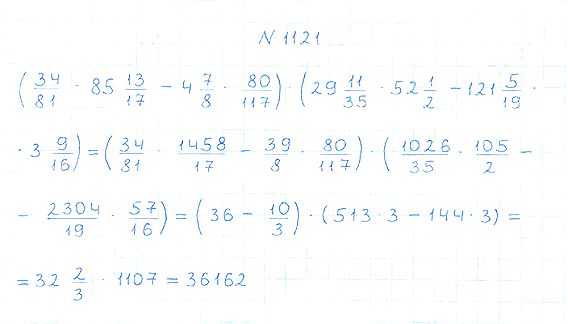 N 1121
(34/81 · 85 13/17 - 4 7/8 · 80/117) · (29 11/35 · 52 1/2 - 121 5/19 ·
· 3 9/16) = (34/81 · 1458/17 - 39/8 · 80/117) · (1026/35 · 105/2 -
- 2304/19 · 57/16) = (36 - 10/3) · (513 · 3 - 144 · 3) =
= 32 2/3 · 1107 = 36162